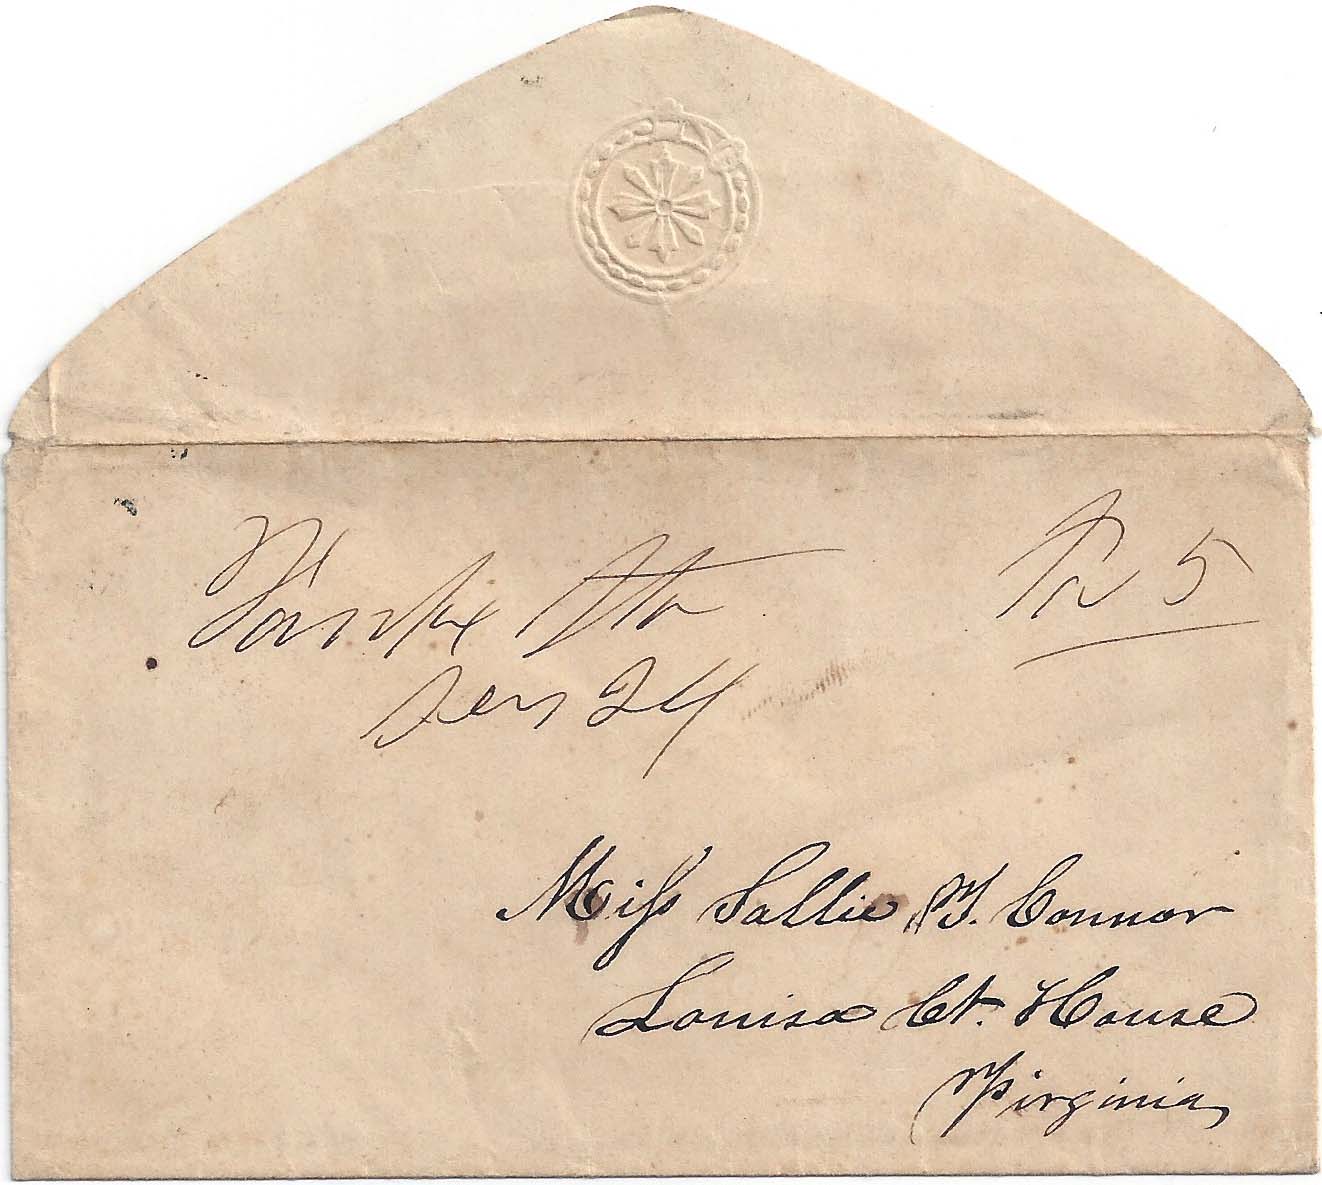 Sta Pd 5
24
Miss Sallie V. Connor
Louisa Ct. House
Virginia